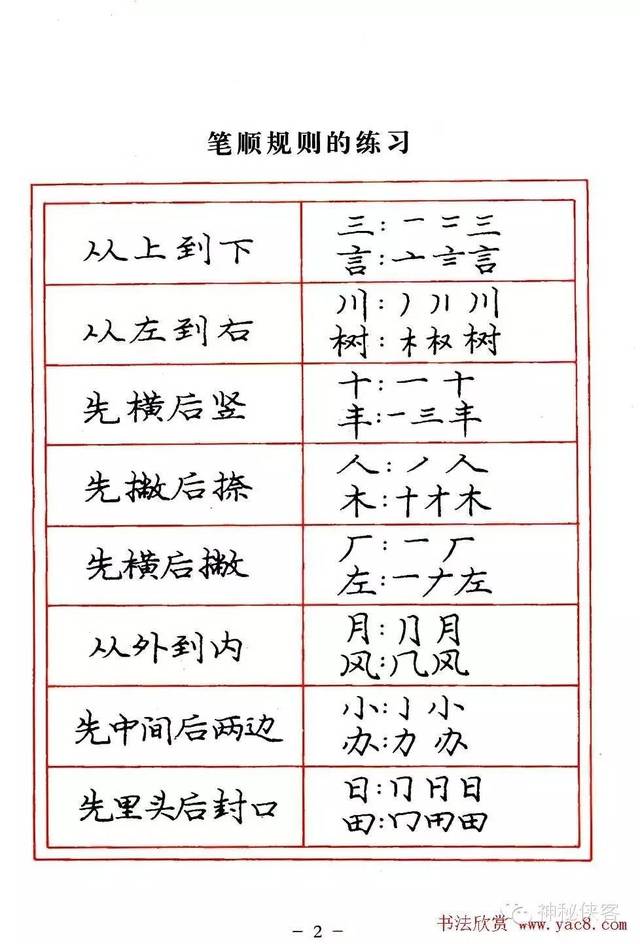 笔顺规则的练习
从上到下
三:一 二 三
言:亠 言
从左到右
川:丿 川
树:木 权 树
先横后竖
十:一 十
丰:一三丰
先撇后捺
人:丿 人
木:十 才 木
先横后撇
厂:一 厂
左:一ナ左
从外到内
月:⺆ 月
风:几风
先中间后两边
小:亅 小
办:力 办
先里头后封口
日:冂 日 日
田:冂 田
神秘侠客
- 2 -
书法欣赏 www.yac8.com